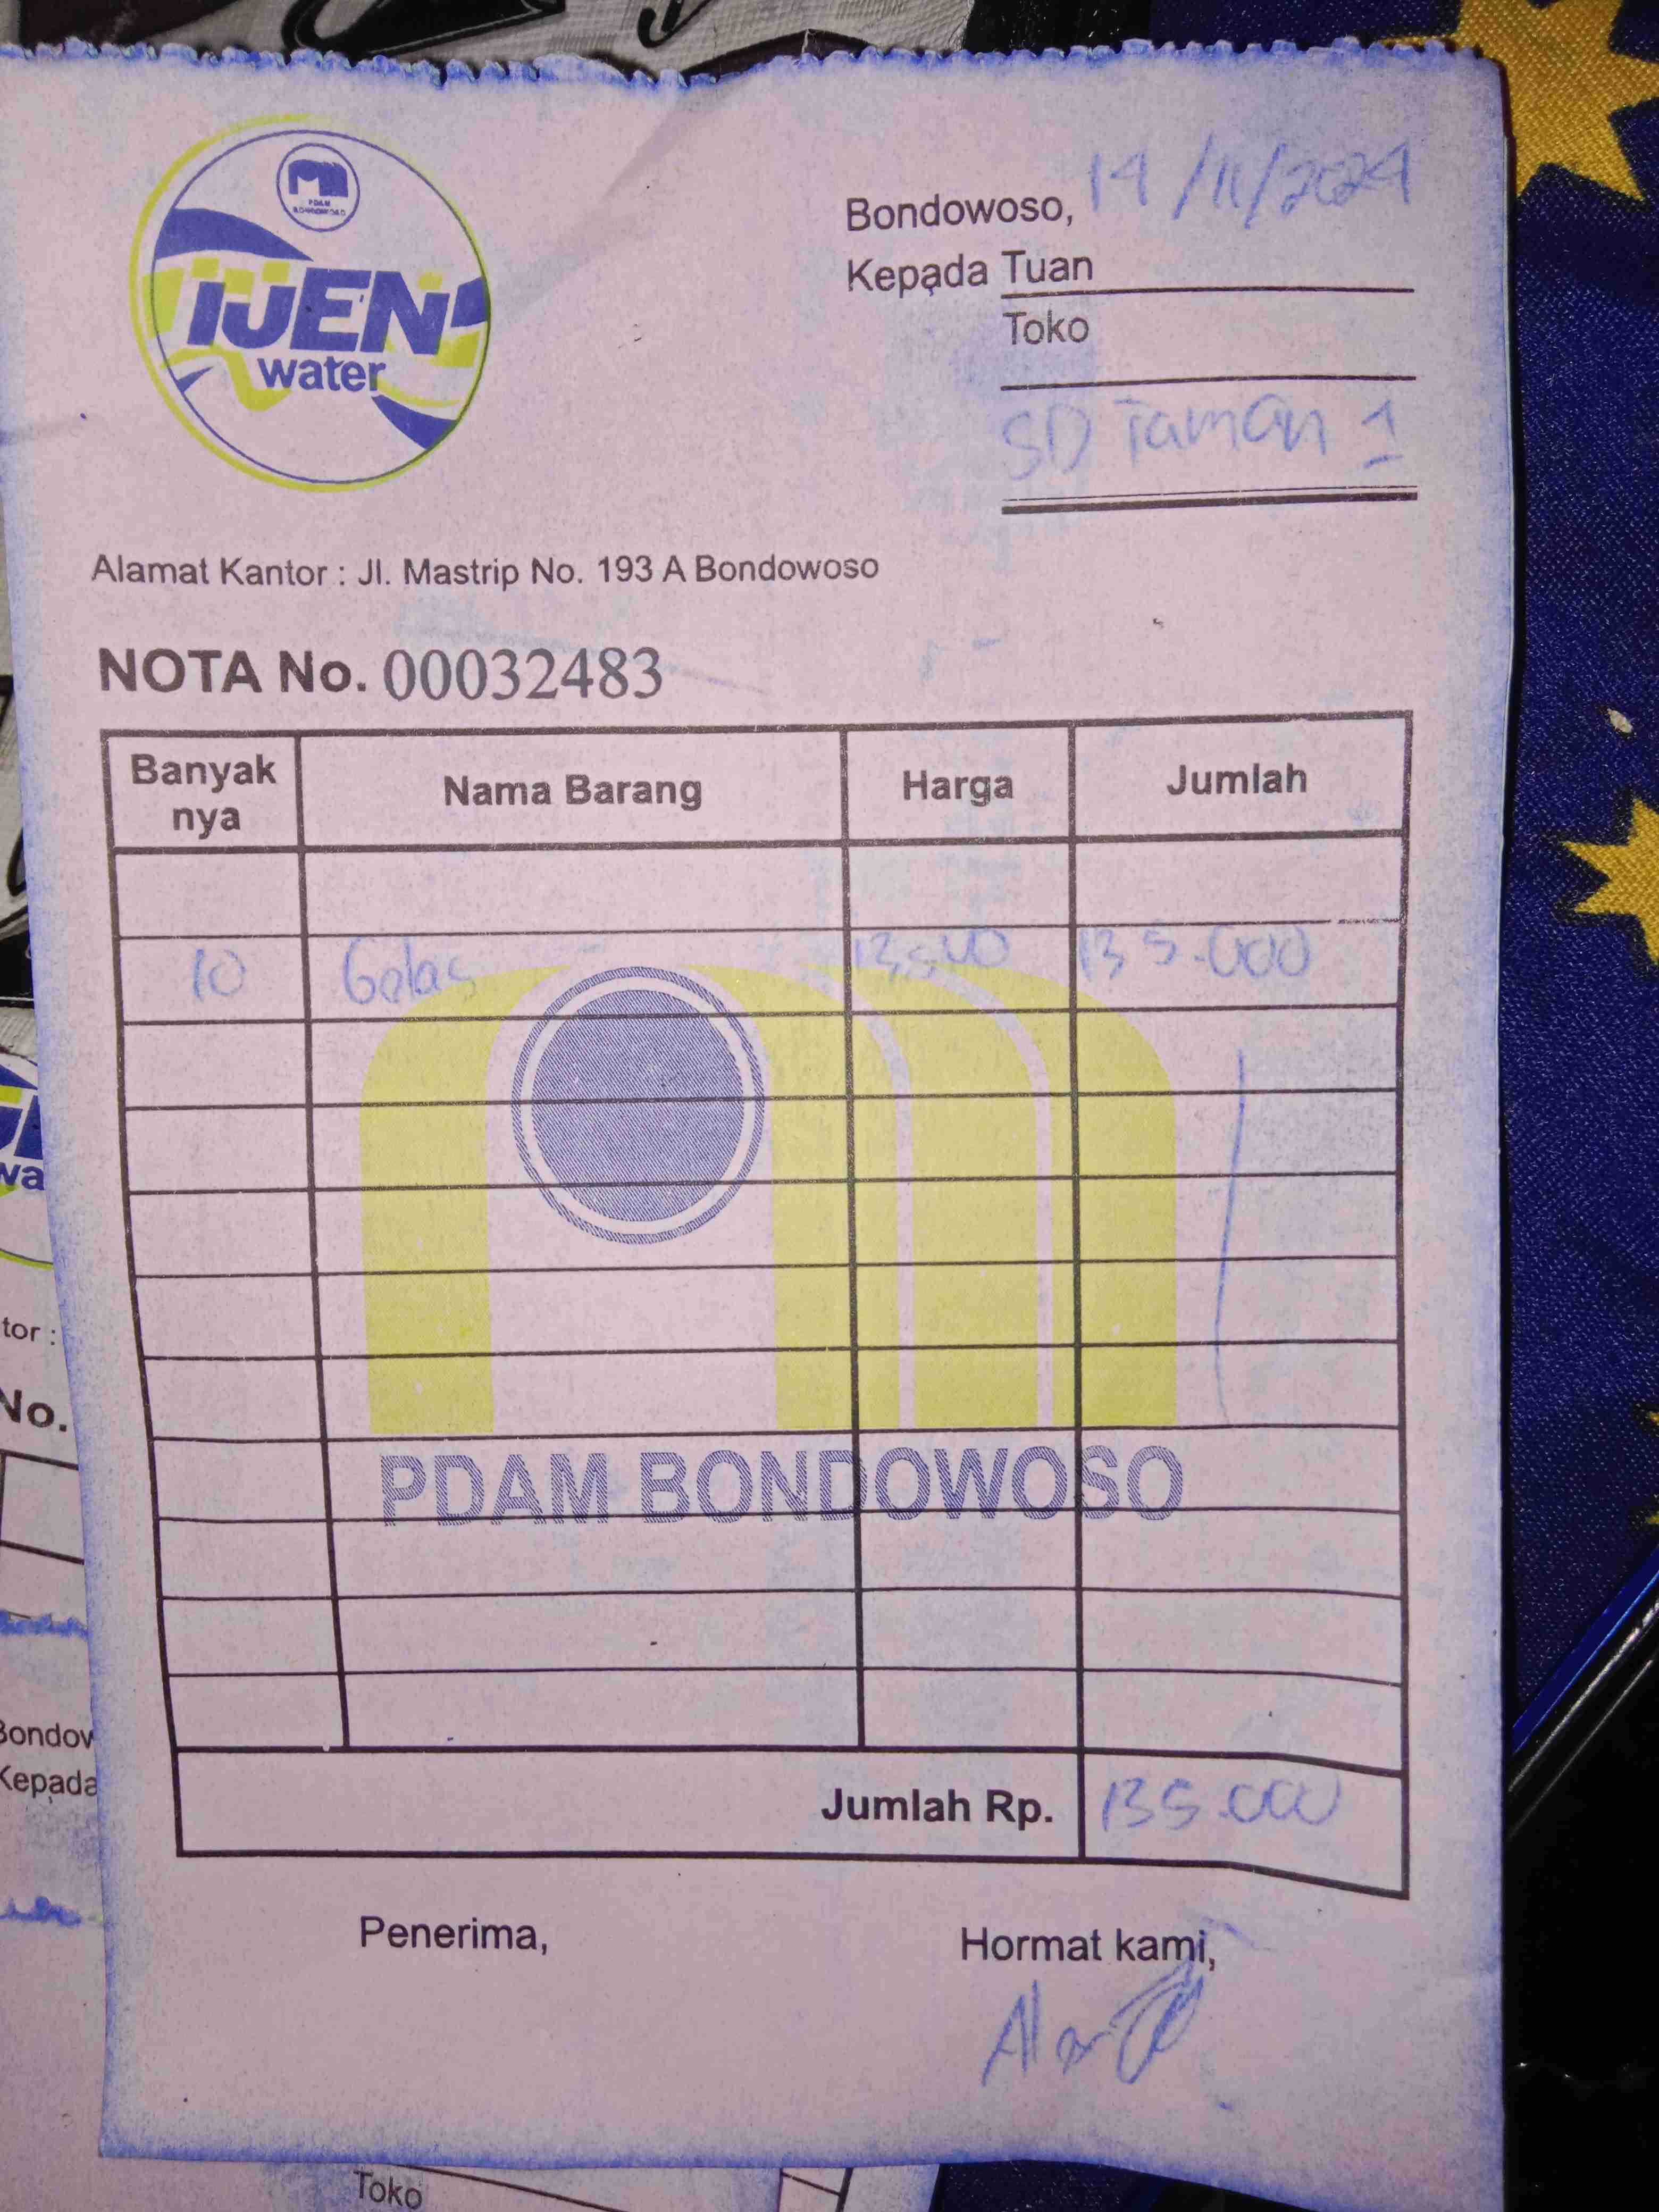 PDAM
BONDOWOSO
IJEN
water
Bondowoso, 14/11/2024
Kepada Tuan
Toko
SD Taman 1
Alamat Kantor : Jl. Mastrip No. 193 A Bondowoso
NOTA No. 00032483
Banyak nya Nama Barang Harga Jumlah
10 Gelas 13.500 135.000
PDAM BONDOWOSO
Jumlah Rp. 135.000
Penerima, Hormat kami,
wa
tor :
No.
Bondow
Kepada
Toko